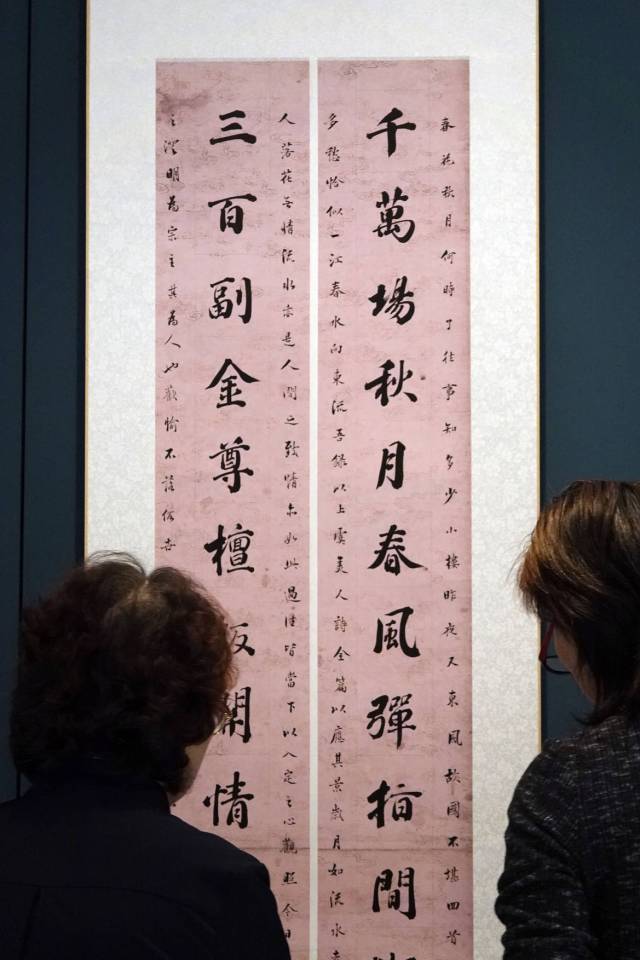 春花秋月何時了往事知多少小樓昨夜又東風故國不堪回首
千萬場秋月春風彈指間
多愁恰似一江春水向東流吾錄以上虞美人詩全篇以應其景歲月如流水
人落花無情流水亦是人間之致情亦如此過往皆當下以入定之心觀照今日
三百副金尊檀板閒情
之澄明為宗主其為人也歡愉不落俗世